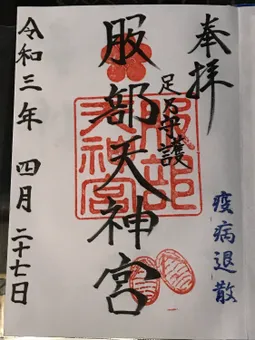 奉拝
疫病退散
足乃守護
服部天神宮
服部天神宮
令和三年 四月 二十七日